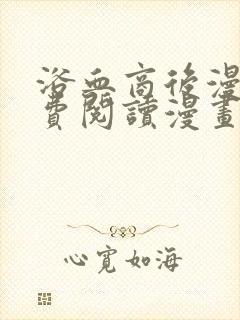 浴血商後漫
費閱讀漫畫
心寬如海